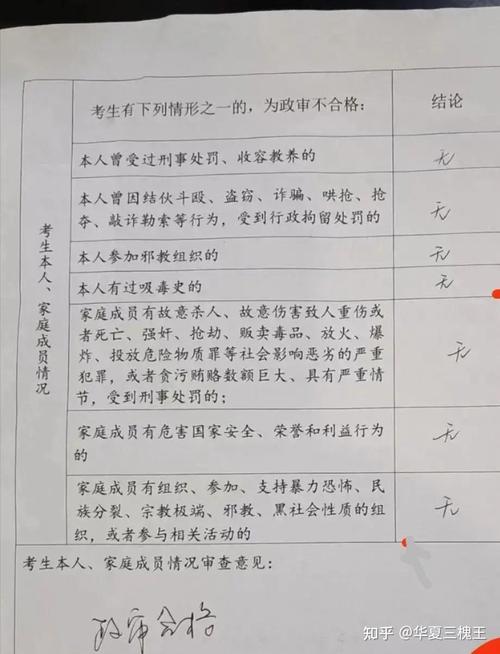 考生有下列情形之一的，为政审不合格：
结论
考生本人、家庭成员情况
本人曾受过刑事处罚、收容教养的
无
本人曾因结伙斗殴、盗窃、诈骗、哄抢、抢
夺、敲诈勒索等行为，受到行政拘留处罚的
无
本人参加邪教组织的
无
本人有过吸毒史的
无
家庭成员有故意杀人、故意伤害致人重伤或
者死亡、强奸、抢劫、贩卖毒品、放火、爆
炸、投放危险物质罪等社会影响恶劣的严重
犯罪，或者贪污贿赂数额巨大、具有严重情
节，受到刑事处罚的；
无
家庭成员有危害国家安全、荣誉和利益行为
的
无
家庭成员有组织、参加、支持暴力恐怖、民
族分裂、宗教极端、邪教、黑社会性质的组
织，或者参与相关活动的
无
考生本人、家庭成员情况审查意见：
政审合格
知乎 @华夏三槐王